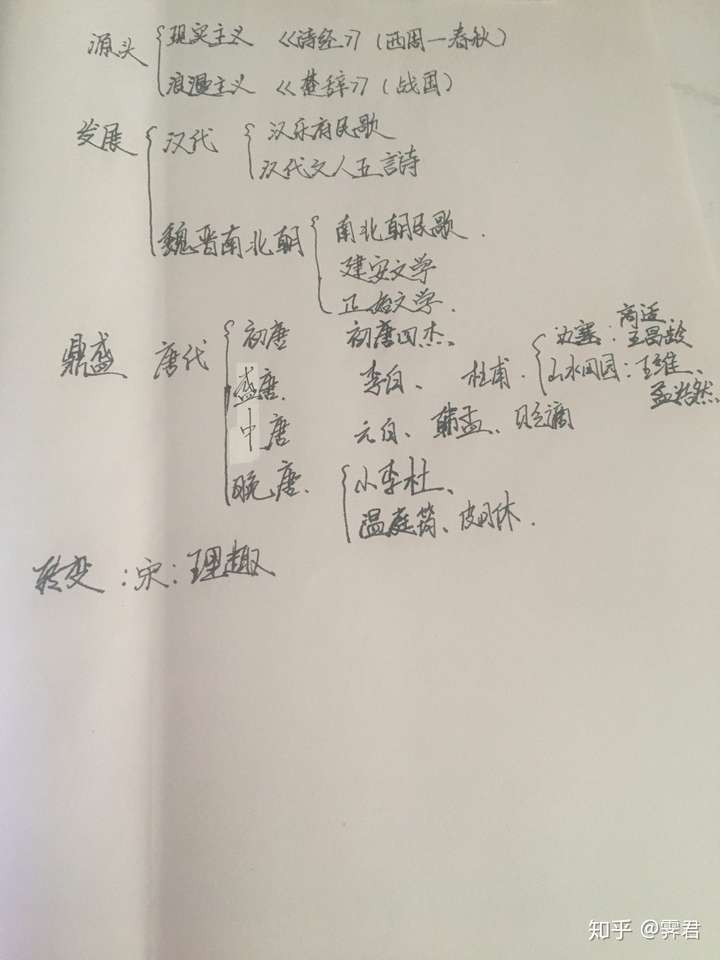 源头 现实主义 《诗经》(西周—春秋)
浪漫主义 《楚辞》(战国)
发展 汉代 汉乐府民歌
汉代文人五言诗
魏晋南北朝 南北朝民歌.
建安文学
正始文学.
鼎盛 唐代 初唐 初唐四杰、
盛唐. 李白、杜甫. 边塞:高适、王昌龄
山水田园:王维、孟浩然、
中唐 元白、韩孟、贬谪
晚唐. 小李杜、
温庭筠、皮日休.
转变:宋:理趣
知乎 @霁君